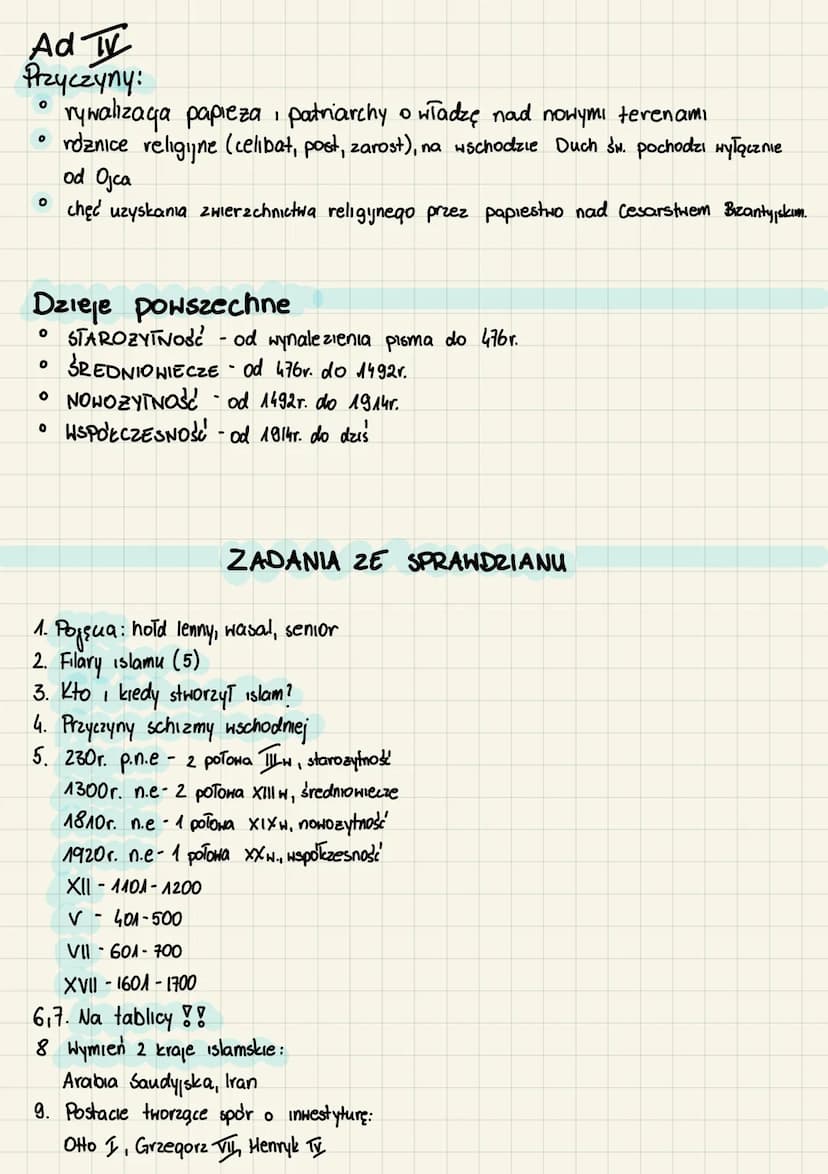 Ad IV
Przyczyny:
° rywalizacja papieża i patriarchy o władzę nad nowymi terenami
° różnice religijne (celibat, post, zarost), na wschodzie Duch św. pochodzi wyłącznie
od Ojca
° chęć uzyskania zwierzchnictwa religijnego przez papiestwo nad Cesarstwem Bzantyjskim.
Dzieje powszechne
° STAROŻYTNOŚĆ - od wynalezienia pisma do 476r.
° ŚREDNIOWIECZE - od 476r. do 1492r.
° NOWOŻYTNOŚĆ - od 1492r. do 1914r.
° WSPÓŁCZESNOŚĆ - od 1914r. do dziś
ZADANIA ZE SPRAWDZIANU
1. Pojęcia: hołd lenny, wasal, senior
2. Filary islamu (5)
3. Kto i kiedy stworzył islam?
4. Przyczyny schizmy wschodniej
5. 230r. p.n.e - 2 połowa III w, starożytność
1300r. n.e - 2 połowa XIII w, średniowiecze
1810r. n.e - 1 połowa XIX w, nowożytność
1920r. n.e - 1 połowa XX w., współczesność
XII - 1101 - 1200
V - 401-500
VII - 601 - 700
XVII - 1601 - 1700
6,7. Na tablicy !!
8 Wymień 2 kraje islamskie:
Arabia Saudyjska, Iran
9. Postacie tworzące spór o inwestyturę:
Otto I, Grzegorz VII, Henryk IV